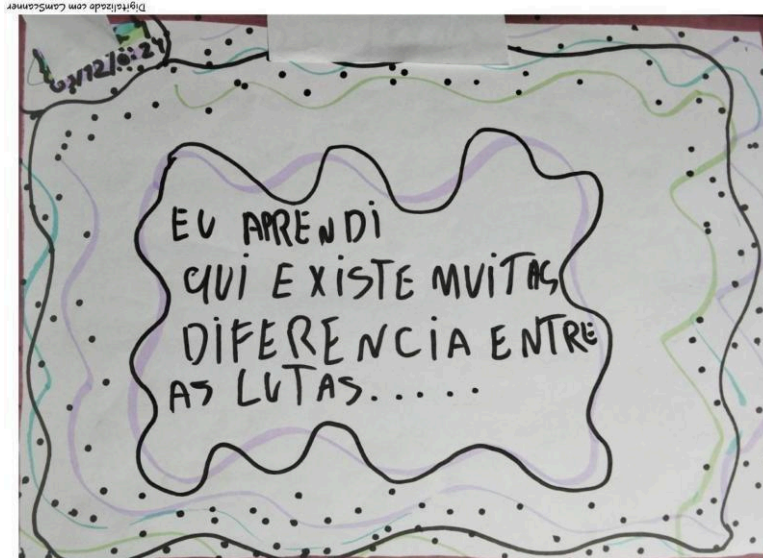 Digitalizado com CamScanner
EU APRENDI
QUI EXISTE MUITAS
DIFERENCIA ENTRE
AS LUTAS.....